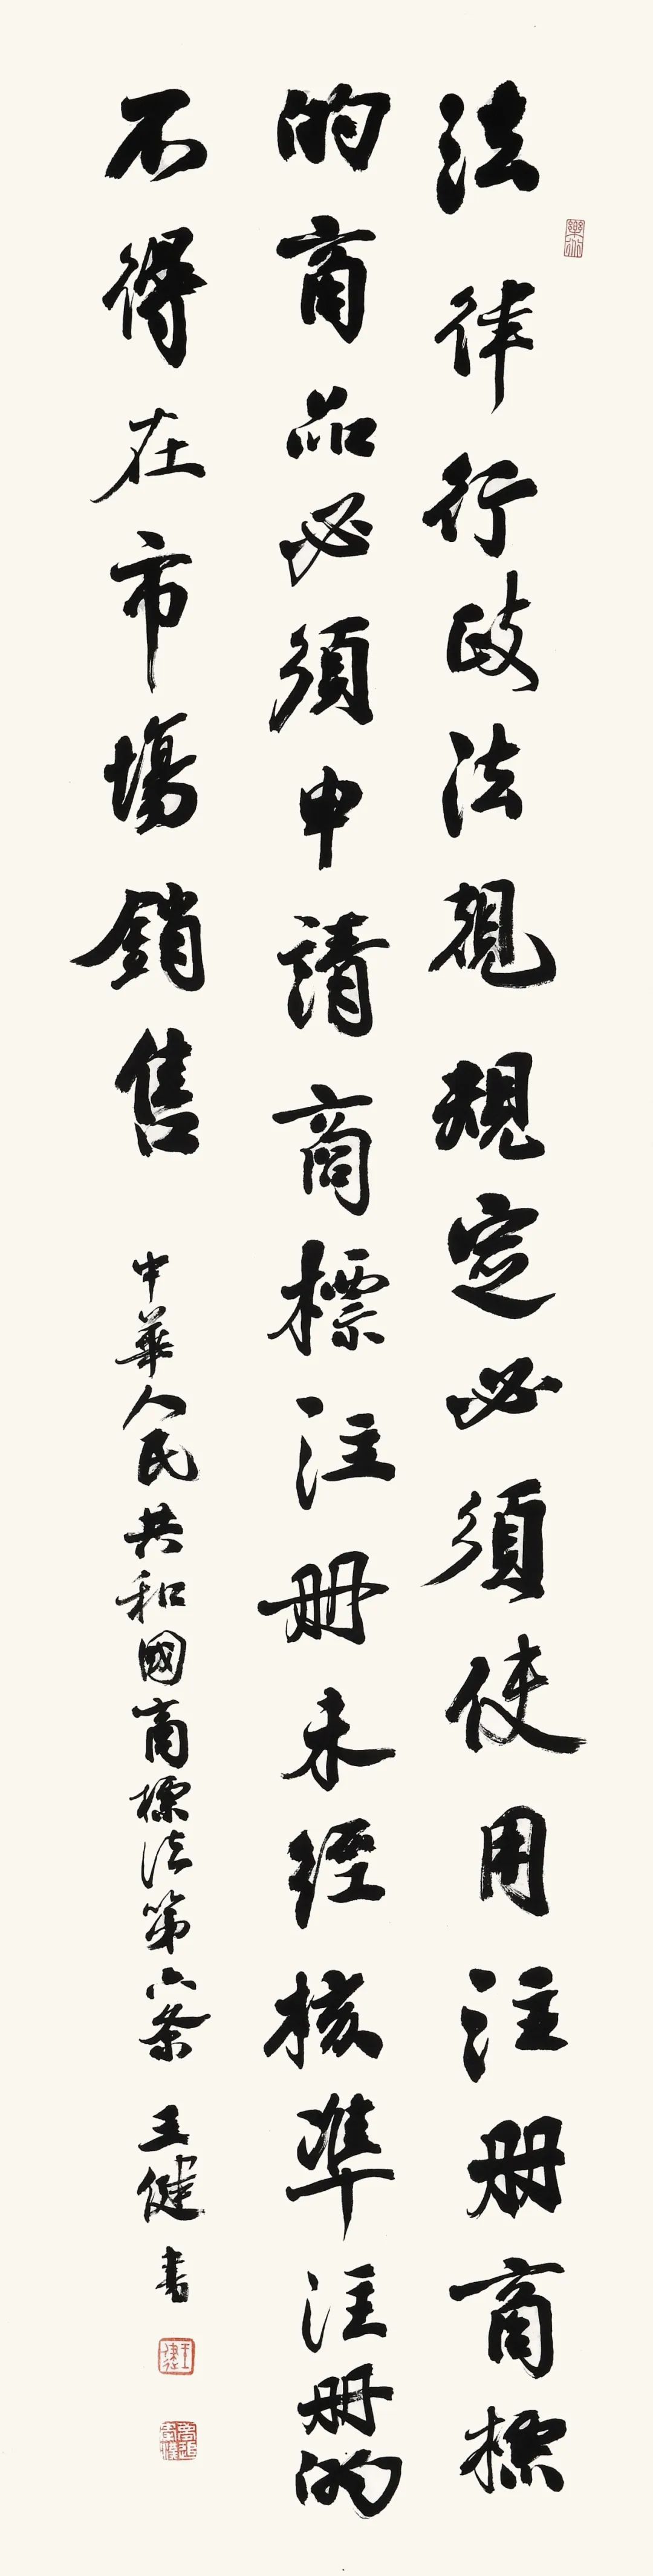 法律行政法規規定必須使用注册商標
的商品必須申請商標注册未經核準注册的
不得在市場銷售
中華人民共和國商標法第六条 王健書
王健